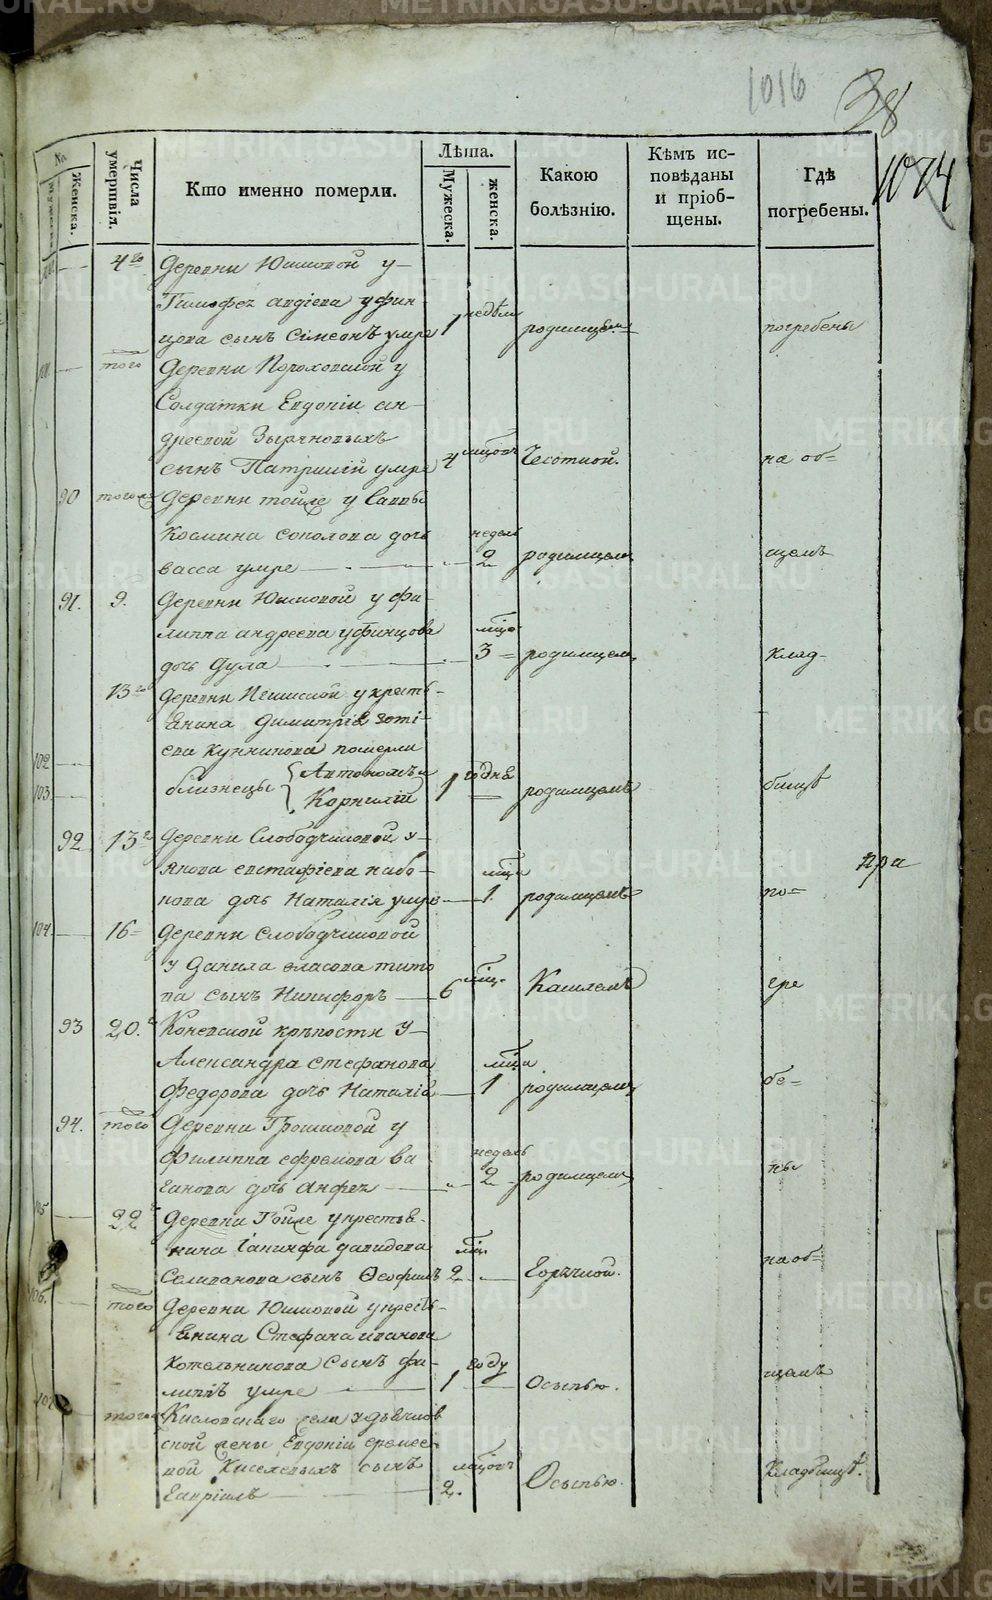 1016
38
1074
№
Мужеска.
Женска.
Числа умертвій.
Кто именно померли.
Лѣта.
Мужеска.
женска.
Какою болѣзнію.
Кѣмъ исповѣданы и пріобщены.
Гдѣ погребены.
4го Деревни Юшковой у
Тимофея авдіева уфин- недѣли
цова сынъ Сімеонъ умре 1 родимцемъ погребены
того Деревни Пороховской у
Солдатки Евдокіи ан-
дреевой Зыряновыхъ
сынъ Патрикій умре 4 Чесоткой. на об=
90 того Деревни тойле у Саввы
Космина соколова дочь недель
васса умре 2 родимцемъ щемъ
91. 9. Деревни Юшковой у Фи-
липпа андреева уфинцова мца
дочь Фула 3 = родимцемъ клад-
13го Деревни Пешиской у кресть-
янина димитрія зоті-
ева кунникова померли
102
103 близнецы Автономъ и Корнилій 1 годнѣ родимцемъ бищѣ
92 13 Деревни Слободчиковой у
якова евстафіева набо- мца
кова дочь Наталія умре 1. родимцемъ по=
104. 16= Деревни слободчиковой
у Данила власова тито мцъ
ва сынъ Никифоръ 6 Кашлемъ гре
пра
93 20. Коневской крѣпости у
Александра стефанова мца
Федорова дочь Наталія 1 родимцемъ бе=
94. того Деревни Грошковой у
Филиппа ефремова ва недель
ганова дочь Анфея 2 родимцемъ ны
22 Деревни Тойле у крестья-
нина Іакинфа давидова мца
Селиванова сынъ Ѳеофилъ 2 Горячкой. на об=
106. того Деревни Юшковой у кресть-
янина Стефана иванова
Котельникова сынъ Фи- году
липпъ умре 1 Осыпью. щемъ
107 того Кисловскаго села
Евдокіи еремее-
вой Киселевыхъ сынъ
Гавріилъ 2. Осыпью. Кладбищѣ.
METRIKI.GASO-URAL.RU